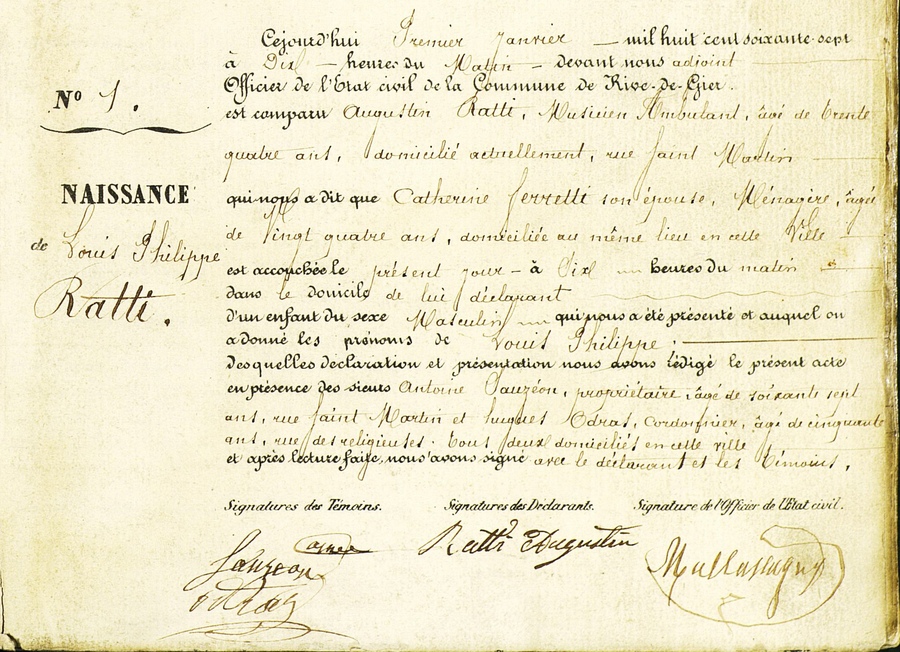 Cejourd'hui Premier Janvier — mil huit cent soixante-sept
à Dix — heures du Matin — devant nous adjoint
Officier de l'Etat civil de la Commune de Rive-de-Gier.
est comparu Augustin Ratti, Musicien Ambulant, âgé de trente
quatre ans, domicilié actuellement, rue Saint Martin
qui nous a dit que Catherine Ferretti son épouse, Ménagère, âgée
de Vingt quatre ans, domiciliée au même lieu en cette Ville
est accouchée le présent jour - à Six heures du matin
dans le domicile de lui déclarant
d'un enfant du sexe Masculin qui nous a été présenté et auquel on
a donné les prénoms de Louis Philippe.
desquelles déclaration et présentation nous avons rédigé le présent acte
en présence des sieurs Antoine Pauzéon, propriétaire, âgé de soixante sept
ans, rue Saint Martin et hugues Odras, Cordonnier, âgé de cinquante
ans, rue des religieuses. tous deux domiciliés en cette ville
et après lecture faite, nous avons signé avec le déclarant et les témoins.
N° 1.
NAISSANCE
de Louis Philippe
Ratti.
Signatures des Témoins.
Signatures des Déclarants.
Signature de l'Officier de l'Etat civil.
Ratti Augustin
odras